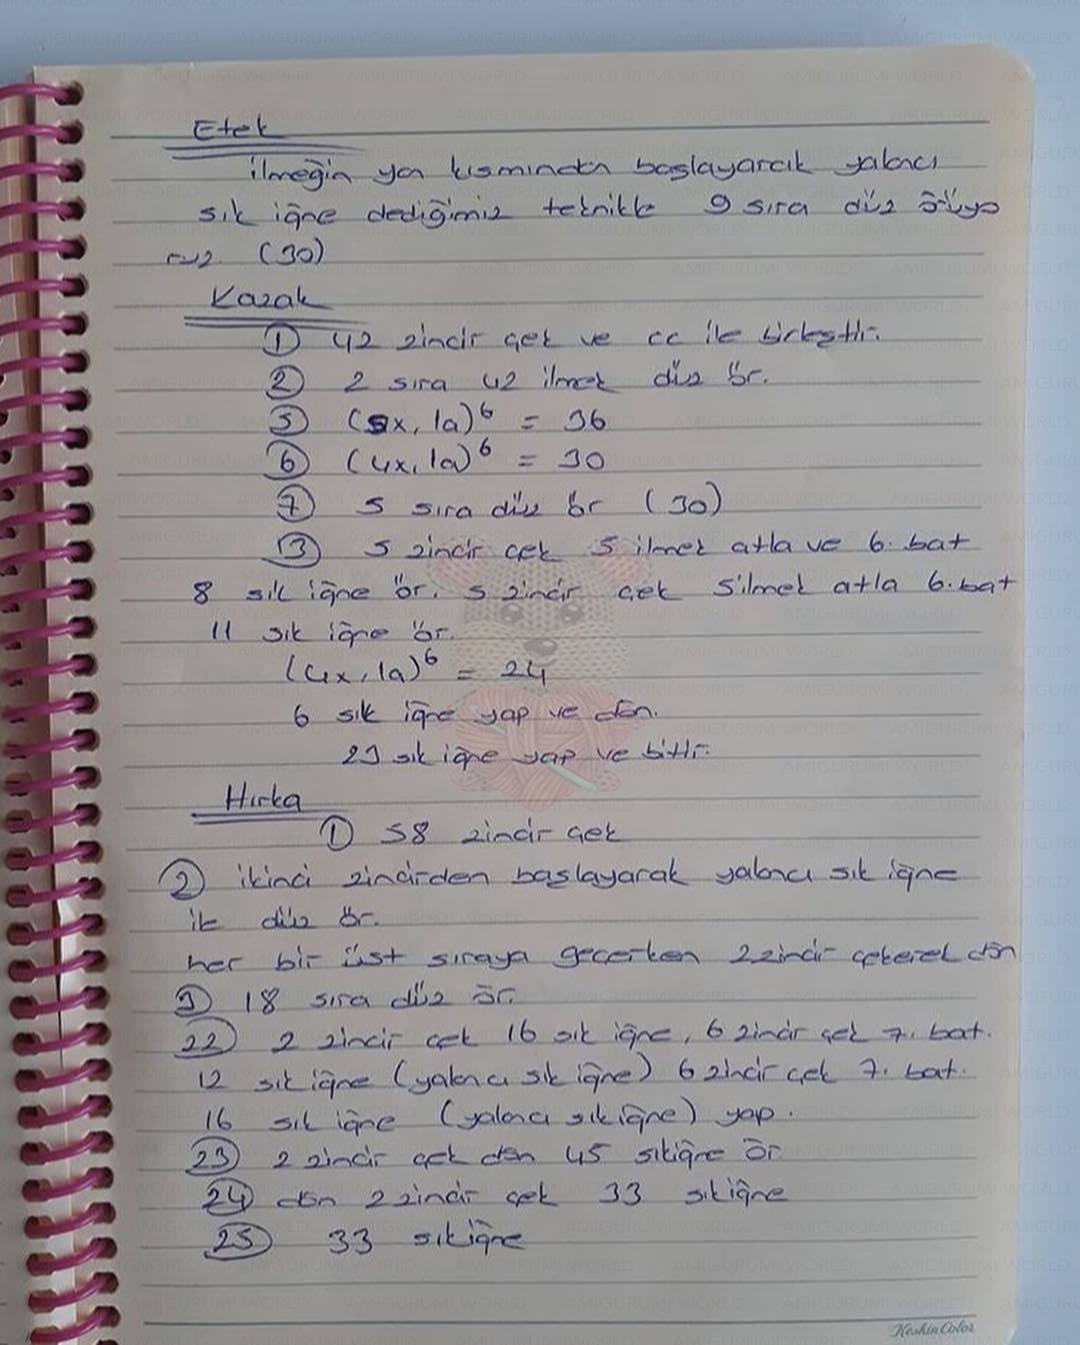 Etek
ilmeğin yan kısmından başlayarak yalancı
sık iğne dediğimiz teknikle 9 sıra düz örüyo
ruz (30)
Kazak
① 42 zincir çek ve cc ile birleştir.
② 2 sıra 42 ilmek düz ör.
⑤ (5x, 1a)⁶ = 36
⑥ (4x, 1a)⁶ = 30
⑦ 5 sıra düz ör (30)
⑬ 5 zincir çek 5 ilmek atla ve 6. bat
8 sık iğne ör. 5 zincir çek 5 ilmek atla 6. bat
11 sık iğne ör.
(4x, 1a)⁶ = 24
6 sık iğne yap ve dön.
23 sık iğne yap ve bitir.
Hırka
① 58 zincir çek
② ikinci zincirden başlayarak yalancı sık iğne
ile düz ör.
her bir üst sıraya geçerken 2 zincir çekerek dön
③ 18 sıra düz ör.
㉒ 2 zincir çek 16 sık iğne, 6 zincir çek 7. bat.
12 sık iğne (yalancı sık iğne) 6 zincir çek 7. bat.
16 sık iğne (yalancı sık iğne) yap.
㉓ 2 zincir çek dön 45 sık iğne ör
㉔ dön 2 zincir çek 33 sık iğne
㉕ 33 sık iğne
Keskin Color